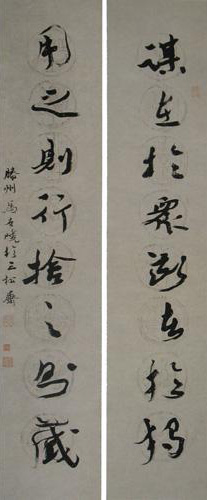 謀在於眾斷在於獨
用之則行捨之則藏
滕州馬世曉於三松齋